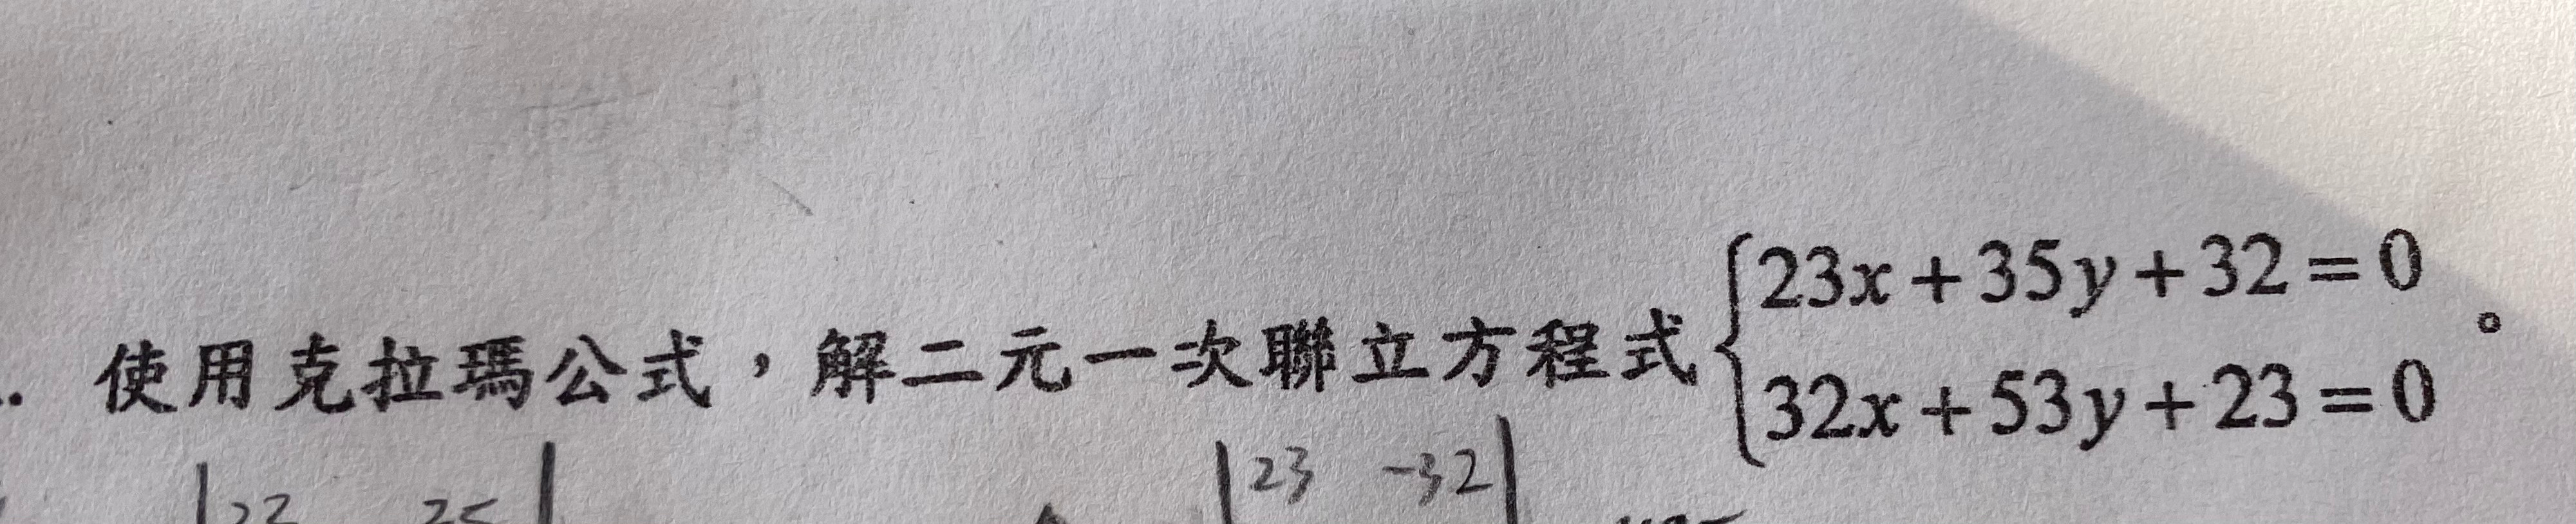 . 使用克拉瑪公式，解二元一次聯立方程式 {23x+35y+32=0
32x+53y+23=0 。
|23 -32|